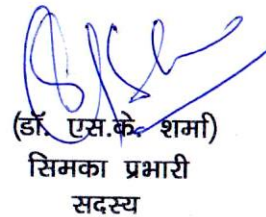 (डॉ. एस.के. शर्मा)
सिमका प्रभारी
सदस्य